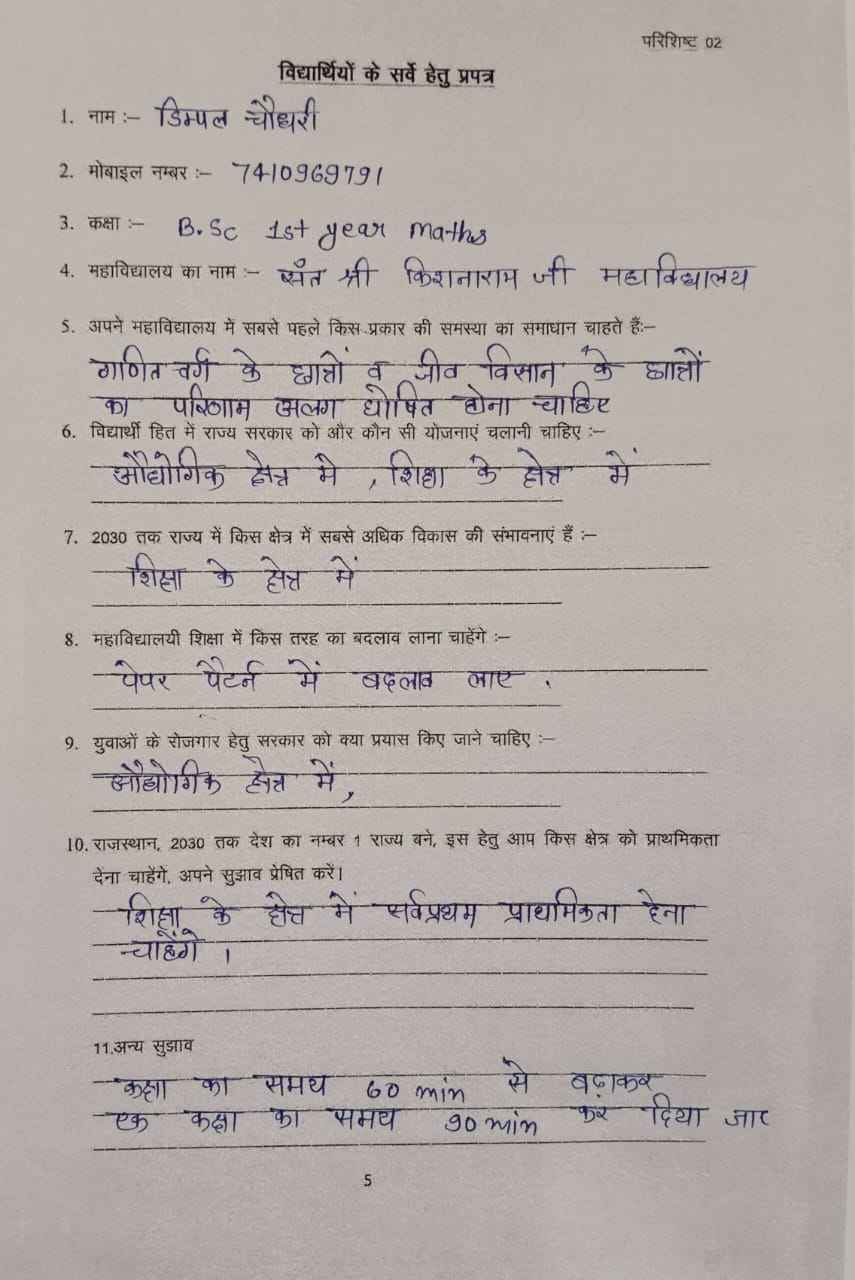 परिशिष्ट 02
विद्यार्थियों के सर्वे हेतु प्रपत्र
1. नाम :– डिम्पल चौधरी
2. मोबाइल नम्बर :– 7410969791
3. कक्षा :– B.Sc 1st year maths
4. महाविद्यालय का नाम :– संत श्री किशनाराम जी महाविद्यालय
5. अपने महाविद्यालय में सबसे पहले किस प्रकार की समस्या का समाधान चाहते हैः–
गणित वर्ग के छात्रों व जीव विज्ञान के छात्रों
का परिणाम अलग घोषित होना चाहिए
6. विद्यार्थी हित में राज्य सरकार को और कौन सी योजनाएं चलानी चाहिए :–
औद्योगिक क्षेत्र मे , शिक्षा के क्षेत्र में
7. 2030 तक राज्य में किस क्षेत्र में सबसे अधिक विकास की संभावनाएं हैं :–
शिक्षा के क्षेत्र में
8. महाविद्यालयी शिक्षा में किस तरह का बदलाव लाना चाहेंगे :–
पेपर पैटर्न में बदलाव लाए .
9. युवाओं के रोजगार हेतु सरकार को क्या प्रयास किए जाने चाहिए :–
औद्योगिक क्षेत्र में,
10. राजस्थान, 2030 तक देश का नम्बर 1 राज्य बने, इस हेतु आप किस क्षेत्र को प्राथमिकता
देना चाहेंगे, अपने सुझाव प्रेषित करें।
शिक्षा के क्षेत्र में सर्वप्रथम प्राथमिकता देना
चाहेंगे ।
11.अन्य सुझाव
कक्षा का समय 60 min से बढ़ाकर
एक कक्षा का समय 90 min कर दिया जाए
5